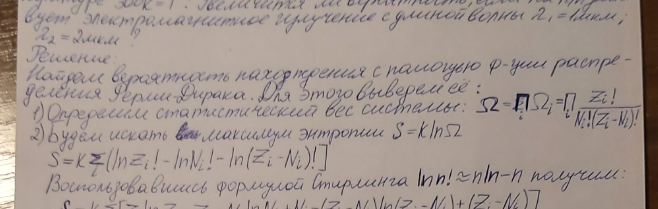 300K = T. Увеличится ли вероятность, если на
вует электромагнитное излучение с длиной волны λ₁ = 1 мкм;
λ₂ = 2 мкм?
Решение.
Найдем вероятность нахождения с помощью ф-ции распре-
деления Ферми-Дирака. Для этого выведем её:
1) Определим статистический вес системы: Ω = ∏ᵢ Ωᵢ = ∏ᵢ Zᵢ! / Nᵢ!(Zᵢ-Nᵢ)!
2) Будем искать максимум энтропии S = k lnΩ
S = k Σᵢ [ln Zᵢ! - ln Nᵢ! - ln(Zᵢ-Nᵢ)!]
Воспользовавшись формулой Стирлинга ln n! ≈ n ln n - n получим: